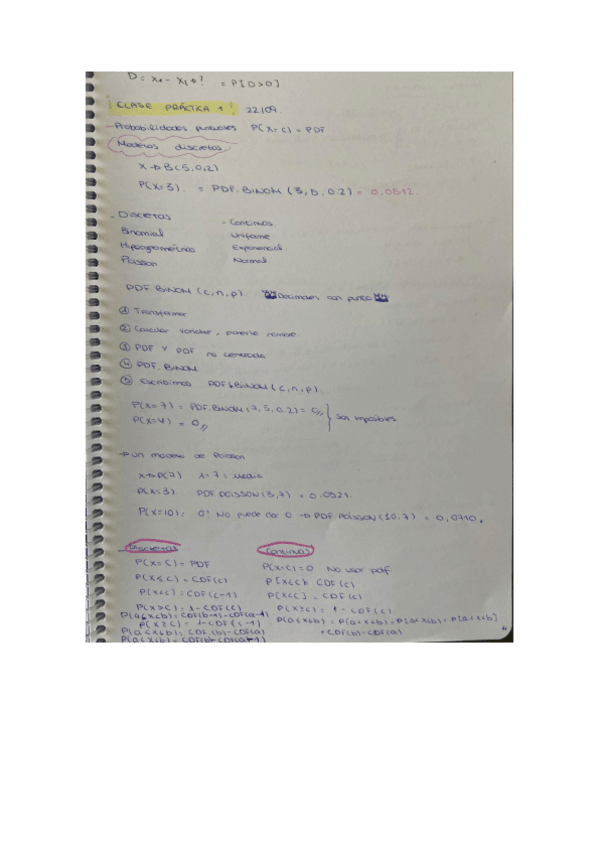 D = X₁ - X₁₀? = P[D>0]
¡CLASE PRÁCTICA 1! 22/09.
- Probabilidades puntuales P(X=c) = PDF
Modelos discretos
X → B(5,0,2)
P(X=3) = PDF.BINOM (3,5,0.2) = 0,0512.
- Discretas - Continuas
Binomial Uniforme
Hipergeométrica Exponencial
Poisson Normal
PDF.BINOM (c,n,p). Decimales con punto
① Transformar
② Calcular variable, ponerle nombre
③ PDF y PDF no centrada
④ PDF.BINOM
⑤ Escribimos PDF.BINOM (c,n,p).
P(X=7) = PDF.BINOM (7,5,0.2) = 0 } Son imposibles
P(X=4) = 0
→ Un modelo de Poisson
X→P(7) λ=7 = Media
P(X=3) PDF.POISSON(3,7) = 0.0521.
P(X=10) = 0? No puede dar 0 → PDF.POISSON(10,7) = 0,0710.
Discretas Continuas
P(X=c) = PDF P(X=c)=0 No usar pdf
P(X≤c) = CDF(c) P[X≤c] = CDF(c)
P(X<c) = CDF(c-1) P[X<c] = CDF(c)
P(X>c) = 1-CDF(c) P(X≥c) = 1-CDF(c)
P(a≤X<b) = CDF(b-1)-CDF(a-1) P(a≤X≤b) = P(a<X<b) = P(a≤X<b) = P[a<X≤b]
P(X≥c) = 1-CDF(c-1) = CDF(b)-CDF(a)
P(a<X≤b) = CDF(b)-CDF(a)
P(a≤X≤b) = CDF(b)-CDF(a-1)